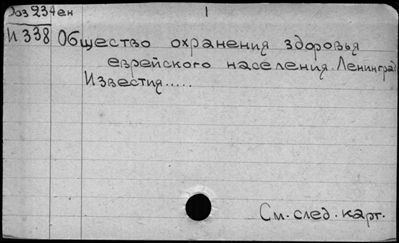 Оаз 234ен 1
И 338 Общество охранения здоровья
еврейского населения. Ленинград
Известия.....
См. след. карт.